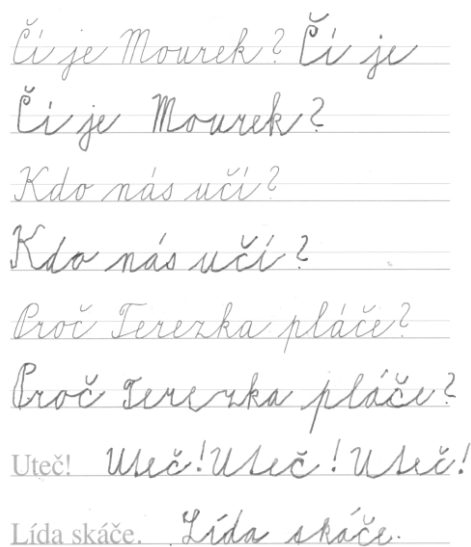 Čí je Mourek? Čí je
Čí je Mourek?
Kdo nás učí?
Kdo nás učí?
Proč Terezka pláče?
Proč Terezka pláče?
Uteč! Uteč! Uteč! Uteč!
Lída skáče. Lída skáče.